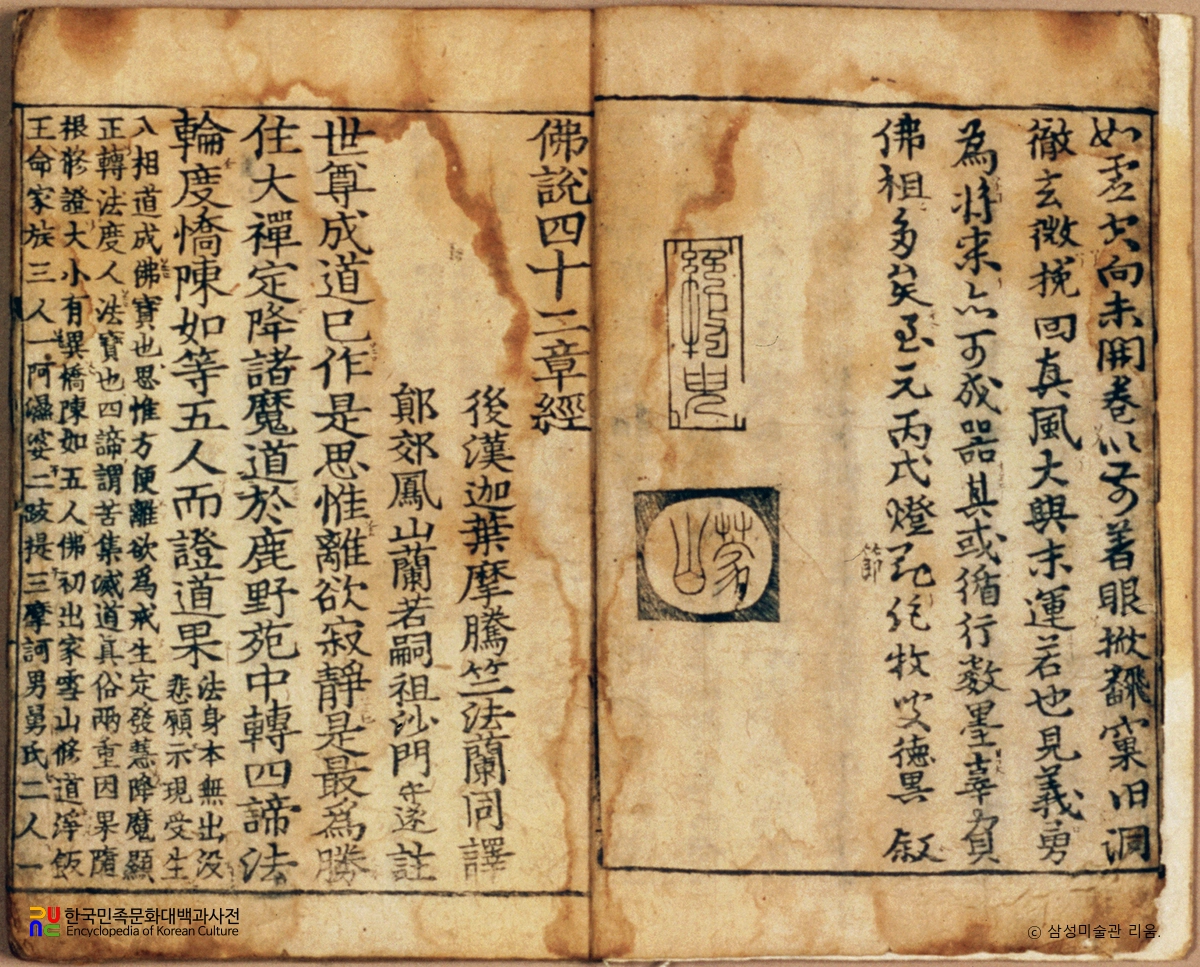 如虛空向未開卷以前着眼掀飜窠旧洞
徹玄微挽回真風大興末運若也見義勇
為將來亦可成器其或循行数墨辜負
佛祖多矣至元丙戌燈節牧叟德異 叙
蒙山
佛說四十二章經
後漢迦葉摩騰竺法蘭同譯
郊鳳山蘭若嗣祖沙門守遂註
世尊成道已作是思惟離欲寂靜是最爲勝
住大禪定降諸魔道於鹿野苑中轉四諦法
輪度憍陳如等五人而證道果
法身本無出没
悲願示現受生
八相道成佛寶也思惟方便離欲爲戒生定發慧降魔顯
正轉法度人法寶也四諦謂苦集滅道真俗兩重因果隨
根修證大小有異憍陳如五人佛初出家雪山修道淨飯
王命家族三人一阿濕婆二跋提三摩訶男舅氏二人一
한국민족문화대백과사전
Encyclopedia of Korean Culture
ⓒ 삼성미술관 리움.